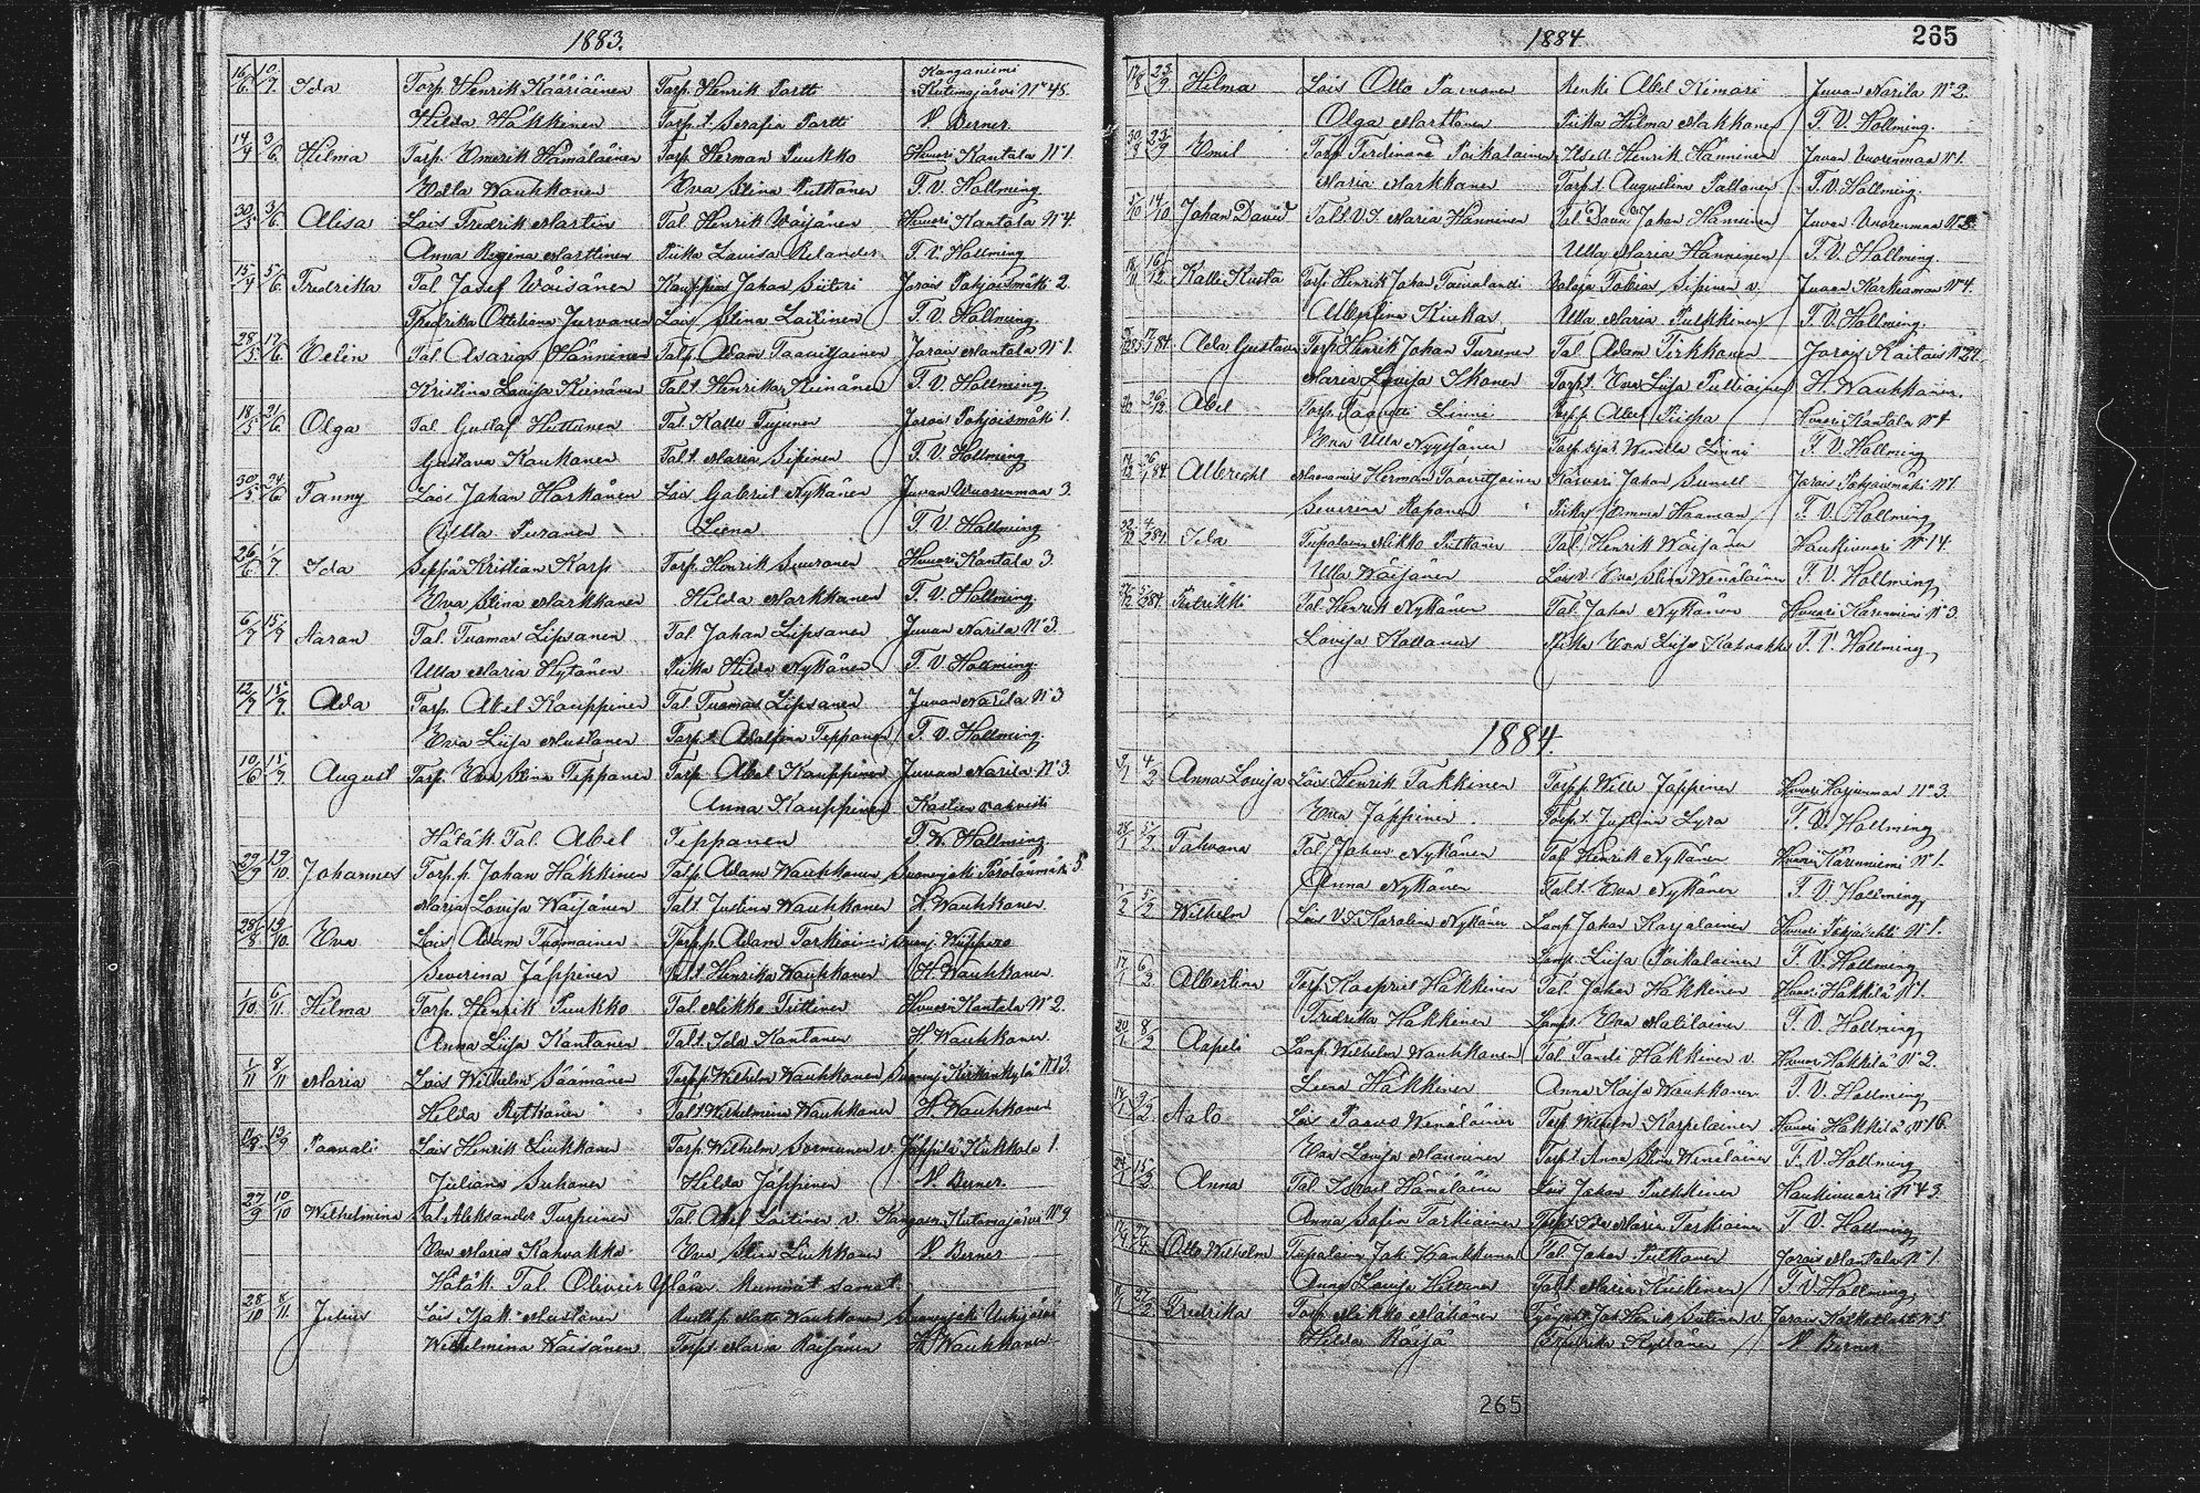 1883.
16/6 10/7 Ida Torp. Henrik Kääriäinen Torp. Henrik Partti Kangasniemi Kutemajärvi No 45.
Hilda Häkkinen Torp.t. Serafia Partti V. Berner.
14/4 3/6 Hilma Torp. Emerik Hämäläinen Torp. Herman Puukko Hvuori Kantala No 1.
Edla Wauhkonen Eva Stina Pulkkanen T. V. Hallming.
30/5 3/6 Alisa Lois Fredrik Martin Tal. Henrik Wäisänen Hvuori Kantala No 4.
Anna Regina Marttinen Piika Lovisa Relander T. V. Hallming
15/4 5/6 Fredrika Tal. Josef Wäisänen Kauppias Johan Siiteri Jorois Pohjoismäki 2.
Fredrika Ottiliana Jurvanen Lois Stina Laitinen T. V. Hallming.
28/5 17/6 Eelin Tal. Asarias Hänninen Talp. Adam Taavitsainen Jorois Mantala No 1.
Kristina Lovisa Keinänen Talt. Henrika Keinänen T. V. Hallming.
18/5 21/6 Olga Tal. Gustaf Huttunen Tal. Kalle Pujunen Jorois Pohjoismäki 1.
Gustava Kaukanen Tal.t. Maria Sipinen T. V. Hallming
30/5 24/6 Fanny Lois Johan Härkönen Lois Gabriel Nykänen Juvan Wuorenmaa 3.
Ulla Puranen Leena T. V. Hallming
26/6 1/7 Ida Seppä Kristian Karp Torp. Henrik Suuronen Hvuori Kantala 3.
Eva Stina Markkanen Hilda Markkanen T. V. Hallming.
6/7 15/7 Aaron Tal. Tuomas Lipsanen Tal. Johan Lipsanen Juvan Narila No 3.
Ulla Maria Hytönen Piika Hilda Nykänen T. V. Hallming.
12/7 15/7 Ada Torp. Abel Kauppinen Tal. Tuomas Lipsanen Juvan Narila No 3
Eva Liisa Mustonen Torp.t. Adolfina Teppanen T. V. Hallming.
10/6 15/7 August Torp. Eva Stina Teppanen Torp. Abel Kauppinen Juvan Narila No 3.
Anna Kauppinen Kasteen vahvisti
Hätäk. Tal. Abel Teppanen T. W. Hallming.
29/9 19/10 Johannes Torp.p. Johan Häkkinen Talp. Adam Wauhkonen Suonenjoki Pörölänmäki 5
Maria Lovisa Wäisänen Talt. Justina Wauhkonen H. Wauhkonen.
28/8 19/10 Eva Lois Adam Tuomainen Torp.p. Adam Tarkiainen Suonenj. Wuppero
Severina Jäppinen Talt. Henrika Wauhkonen H. Wauhkonen.
1/10 6/11 Hilma Torp. Henrik Puukko Tal. Mikko Tuttinen Hvuori Kantala No 2.
Anna Liisa Kantanen Talt. Ida Kantanen H. Wauhkonen.
1/11 8/11 Maria Lois Wilhelm Säämänen Torp.p. Wilhelm Wauhkonen Suonenj. Kirkonkylä No 13.
Hilda Rytkönen Talt. Wilhelmina Wauhkonen H. Wauhkonen
19/9 Paavali Lois Henrik Liukkonen Torp. Wilhelm Sormunen v. Jäppilä Kiukkola 1.
Juliana Suhonen Hilda Jäppinen V. Berner.
27/9 10/10 Wilhelmina Tal. Aleksander Turpeinen Tal. Abel Laitinen v. Kangasn. Kutemajärvi No 9
Eva Maria Kahvakko Eva Stina Liukkonen V. Berner
Hätäk. Tal. Olivier Ylönen. Kummit samat.
28/10 8/11 Julius Lois Isak Mustonen Matts Wauhkonen Suonenjoki
Wilhelmina Wäisänen Torp.t. Maria Räisänen H. Wauhkonen
1884
265
17/8 23/9 Hilma Lois Otto Paunonen Renki Abel Kimari Juvan Narila No 2.
Olga Marttinen Piika Hilma Makkonen T. V. Hallming.
23/9 Emil Torp. Ferdinand Poikalainen Henrik Hänninen Juvan Vuorenmaa No 1.
Maria Markkanen Torp.t. Augustina Paltanen T. V. Hallming.
5/10 14/10 Johan David Talt. V.I. Maria Hänninen Tal. David Johan Hänninen Juvan Vuorenmaa No 8.
Ulla Maria Hänninen T. V. Hallming.
18/11 16/12 Kalle Kusta Torp. Henrik Johan Taivalanti Tobias Sipinen v. Juvan Koikamaa No 4.
Albertina Kiukas Ulla Maria Pulkkinen T. V. Hallming.
84. Ada Gustava Torp. Henrik Johan Turunen Tal. Adam Pirkkonen Jorois Kaitais No 22.
Maria Lovisa Ikonen Torp.t. Eva Liisa Pulliainen H. Wauhkonen.
26/12 Abel Torp. Paavetti Linni Torp.p. Abel Piispa Hvuori Kantala No 4
Eva Ulla Nyyssönen Wendla Linni T. V. Hallming
84. Albrecht Herman Taavitsainen Johan Sunell Jorois Pohjoismäki No 1.
Severina Roponen Piika Emma Haaman T. V. Hallming
84. Ida Mikko Pulkkanen Tal. Henrik Wäisänen Haukivuori No 14.
Ulla Wäisänen Lois v. Eva Stina Wenäläinen T. V. Hallming
84. Pietrikki Tal. Henrik Nykänen Tal. Johan Nykänen Hvuori Kärenniemi No 3.
Lovisa Kallanen Piika Eva Liisa Kahvakko T. V. Hallming
1884.
4/2 Anna Lovisa Lois Henrik Takkinen Torp.p. Wille Jäppinen Hvuori No 3.
Eva Jäppinen Torp.t. Justina Lyra T. V. Hallming
Tahvana Tal. Johan Nykänen Tal. Henrik Nykänen Hvuori Kärenniemi No 1.
Anna Nykänen Talt. Eva Nykänen T. V. Hallming
5/2 Wilhelm Lois V.I. Karolina Nykänen Lamp. Johan Karjalainen Hvuori No 1.
Lamp. Liisa Poikalainen T. V. Hallming
17/1 6/2 Albertina Torp. Kaspriel Häkkinen Tal. Johan Häkkinen Hvuori Häkkilä No 1.
Fredrika Häkkinen Lamp. Eva Matilainen T. V. Hallming
20/1 8/2 Aapeli Lamp. Wilhelm Wauhkonen Tal. Taneli Häkkinen v. Hvuori Häkkilä No 2.
Leena Häkkinen Anna Kaisa Wauhkonen T. V. Hallming
9/2 Aalo Lois Paavo Wenäläinen Torp. Wilhelm Karpelainen Hvuori Häkkilä No 16.
Eva Lovisa Manninen Torp.t. Anna Stina Wenäläinen T. V. Hallming
15/2 Anna Tal. Israel Hämäläinen Lois Johan Pulkkinen Haukivuori No 43.
Anna Sofia Tarkiainen Torp.t. Ida Maria Tarkiainen T. V. Hallming
Otto Wilhelm Johan Pulkkanen Jorois Mantala No 1.
Anna Lovisa Talt. Maria Keskinen T. V. Hallming
Fredrika Torp. Mikko Mähönen Joh. Henrik Sutinen v. Jorois No 5.
Hilda Räisä Fredrika V. Berner
265